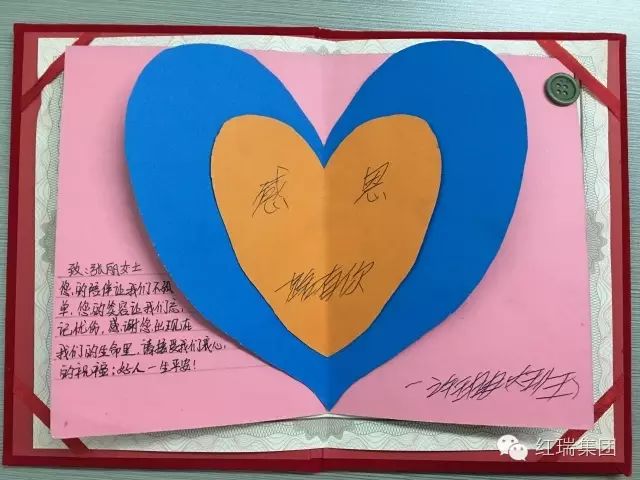 感 恩
一路有你
致:张丽女士
您的陪伴让我们不孤
单,您的笑容让我们忘
记忧伤,感谢您出现在
我们的生命里,请接受我们衷心
的祝福:好人一生平安!
红瑞集团